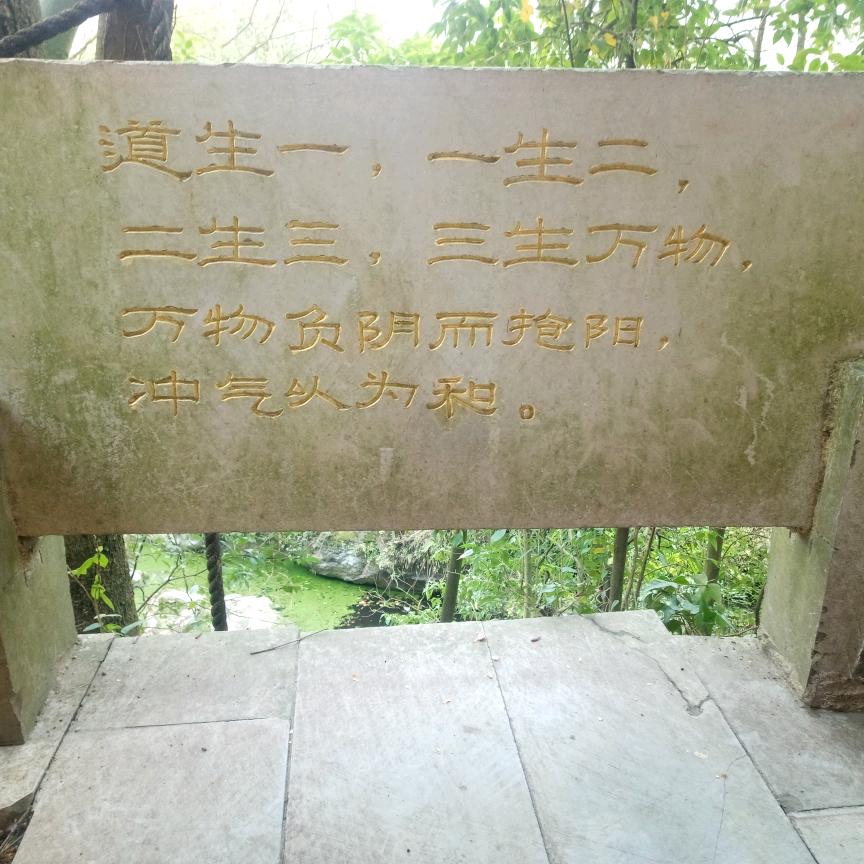 道生一，一生二，
二生三，三生万物，
万物负阴而抱阳，
冲气以为和。